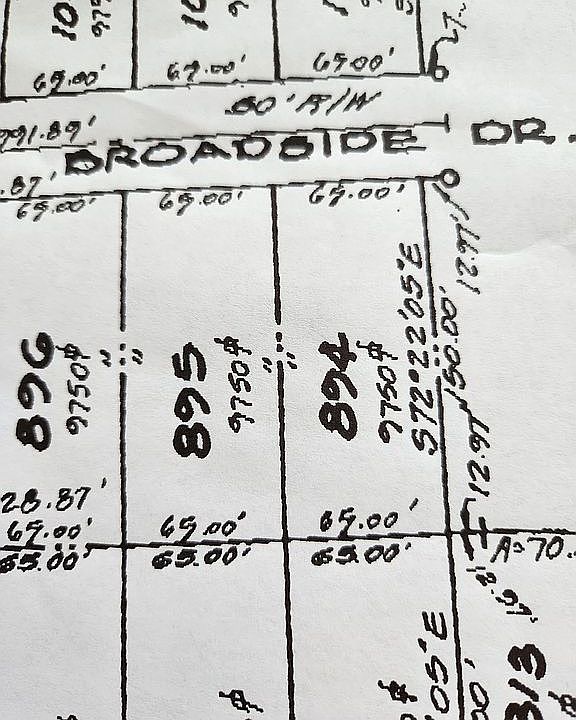 10
65.00'
65.00'
65.00'
60' R/W
991.89'
BROADSIDE DR.
.87'
65.00'
65.00'
65.00'
12.97'
896
9750
895
9750
894
9750
S72°22'05"E
150.00'
12.97'
28.87'
65.00'
65.00'
65.00'
65.00'
65.00'
65.00'
A=70.
12.97'
05"E
00'
313